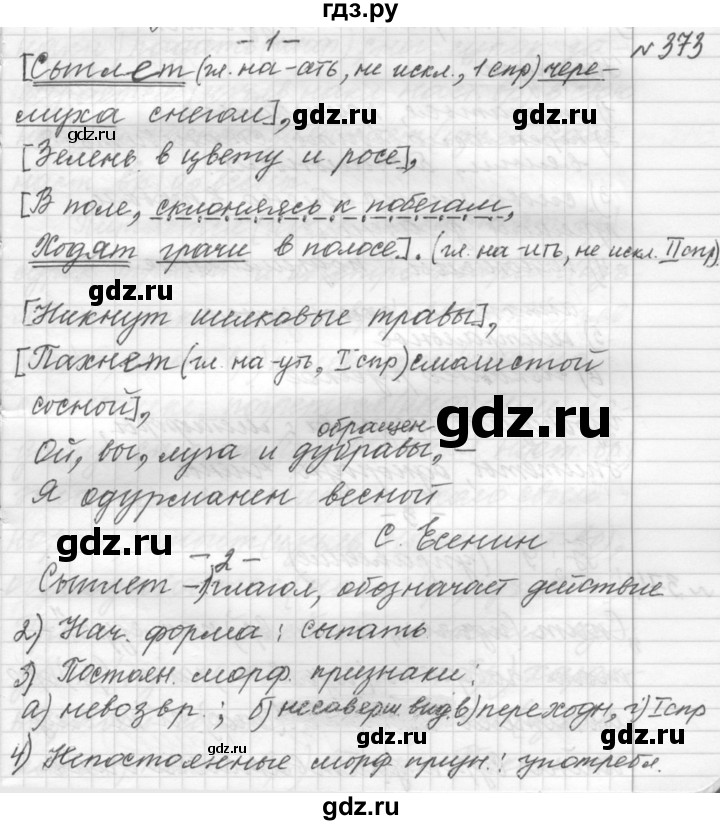 гдз.ру
- 1 -
№ 373
[Сыплет (гл. на -ать, не искл., 1 спр) чере-
муха снегом],
gdz.ru gdz.ru
[Зелень в цвету и росе],
[В поле, склоняясь к побегам,
Ходят грачи в полосе]. (гл. на -ить, не искл. II спр)
gdz.ru
[Никнут шелковые травы],
gdz.ru
[Пахнет (гл. на -уть, I спр) смолистой
сосной],
обращен
Ой, вы, луга и дубравы, -
gdz.ru
Я одурманен весной
С. Есенин
gdz.ru gdz.ru
- 2 -
Сыплет - 1) глагол, обозначает действие
2) Нач. форма: сыпать
3) Постоян. морф. признаки:
а) невозвр.; б) несоверш вид, в) переходн, г) I спр
gdz.ru gdz.ru
4) Непостоянные морф призн.: употребл.
gdz.ru